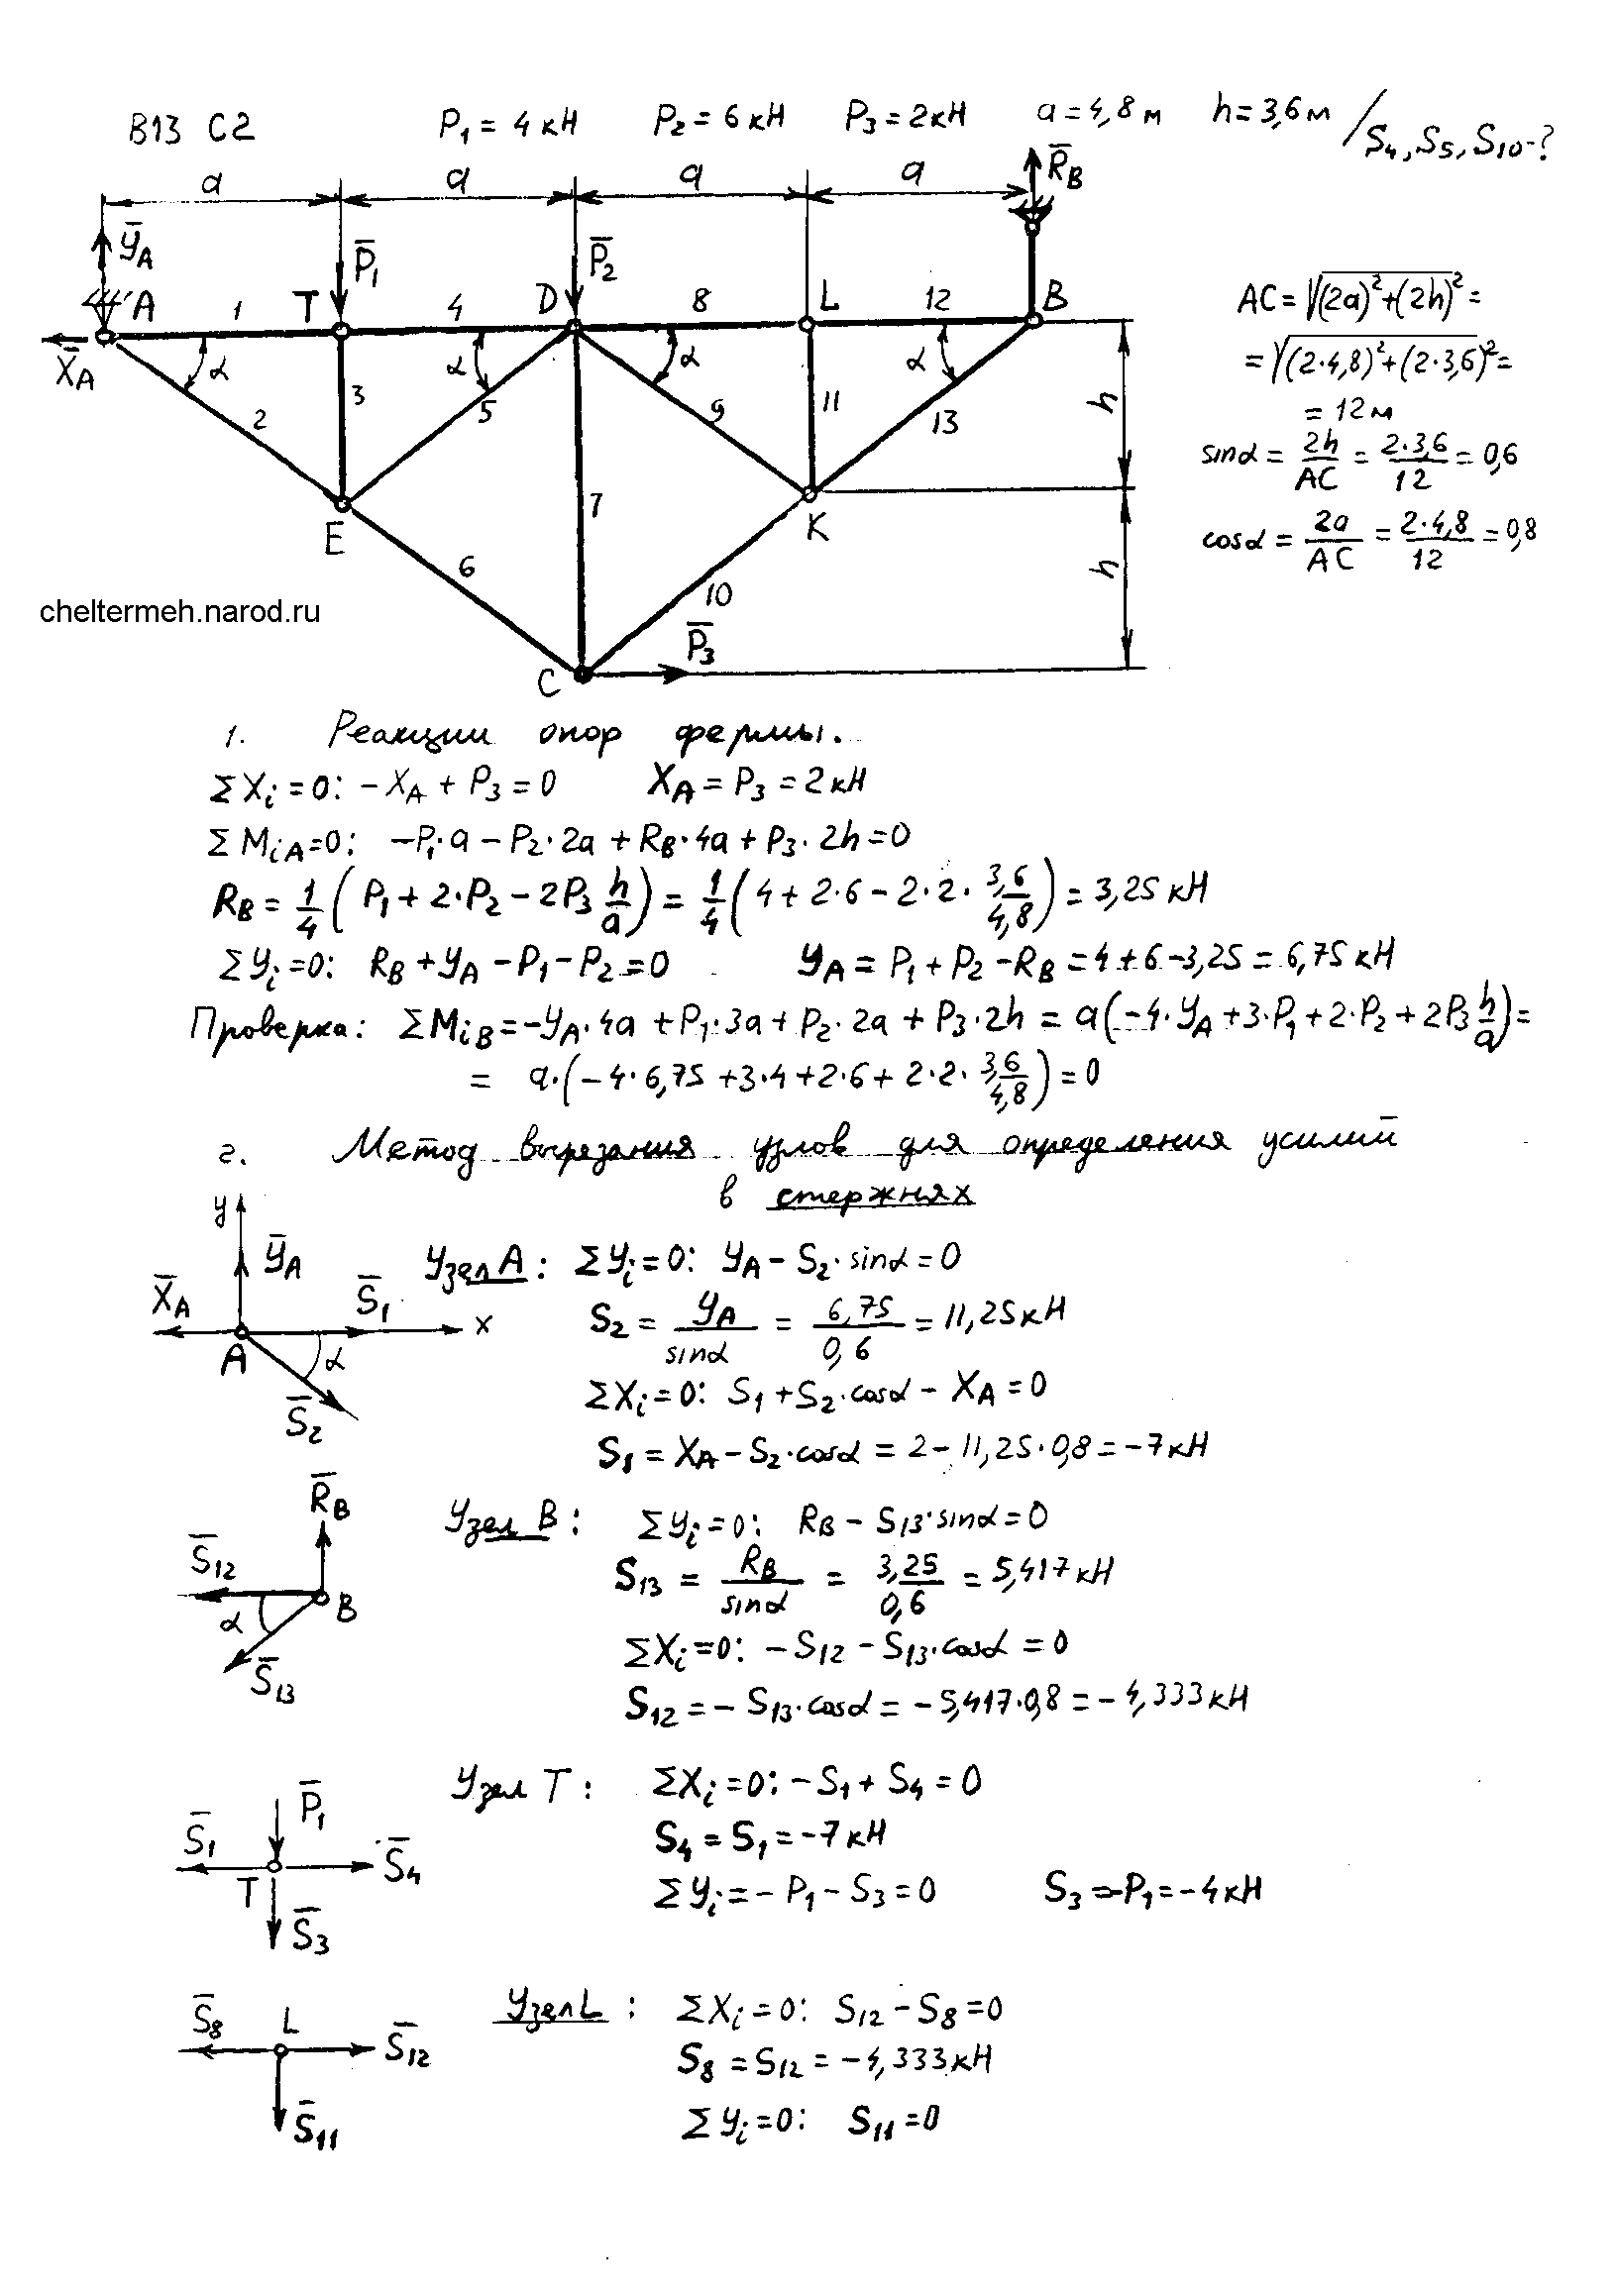 В13 С2 P₁ = 4 кН P₂ = 6 кН P₃ = 2 кН a = 4,8 м h = 3,6 м / S₄, S₅, S₁₀ - ?
a a a a R̅_B
Y̅_A P̅₁ P̅₂
A 1 T 4 D 8 L 12 B
X̅_A α α α α
2 3 5 9 11 13 h
E K
6 7 10 h
C P̅₃
AC = √((2a)² + (2h)²) =
= √((2·4,8)² + (2·3,6)²) =
= 12 м
sinα = 2h/AC = 2·3,6/12 = 0,6
cosα = 2a/AC = 2·4,8/12 = 0,8
cheltermeh.narod.ru
1. Реакции опор фермы.
ΣXᵢ = 0: -X_A + P₃ = 0 X_A = P₃ = 2 кН
ΣM_iA = 0: -P₁·a - P₂·2a + R_B·4a + P₃·2h = 0
R_B = 1/4 (P₁ + 2·P₂ - 2P₃ h/a) = 1/4 (4 + 2·6 - 2·2·3,6/4,8) = 3,25 кН
ΣYᵢ = 0: R_B + Y_A - P₁ - P₂ = 0 Y_A = P₁ + P₂ - R_B = 4 + 6 - 3,25 = 6,75 кН
Проверка: ΣM_iB = -Y_A·4a + P₁·3a + P₂·2a + P₃·2h = a(-4·Y_A + 3·P₁ + 2·P₂ + 2P₃ h/a) =
= a·(-4·6,75 + 3·4 + 2·6 + 2·2·3,6/4,8) = 0
2. Метод вырезания узлов для определения усилий
в стержнях
y Y̅_A X̅_A S̅₁ x A α S̅₂
Узел A: ΣYᵢ = 0: Y_A - S₂·sinα = 0
S₂ = Y_A/sinα = 6,75/0,6 = 11,25 кН
ΣXᵢ = 0: S₁ + S₂·cosα - X_A = 0
S₁ = X_A - S₂·cosα = 2 - 11,25·0,8 = -7 кН
R̅_B S̅₁₂ B α S̅₁₃
Узел B: ΣYᵢ = 0: R_B - S₁₃·sinα = 0
S₁₃ = R_B/sinα = 3,25/0,6 = 5,417 кН
ΣXᵢ = 0: -S₁₂ - S₁₃·cosα = 0
S₁₂ = -S₁₃·cosα = -5,417·0,8 = -4,333 кН
P̅₁ S̅₁ S̅₄ T S̅₃
Узел T: ΣXᵢ = 0: -S₁ + S₄ = 0
S₄ = S₁ = -7 кН
ΣYᵢ = -P₁ - S₃ = 0 S₃ = -P₁ = -4 кН
S̅₈ L S̅₁₂ S̅₁₁
Узел L: ΣXᵢ = 0: S₁₂ - S₈ = 0
S₈ = S₁₂ = -4,333 кН
ΣYᵢ = 0: S₁₁ = 0